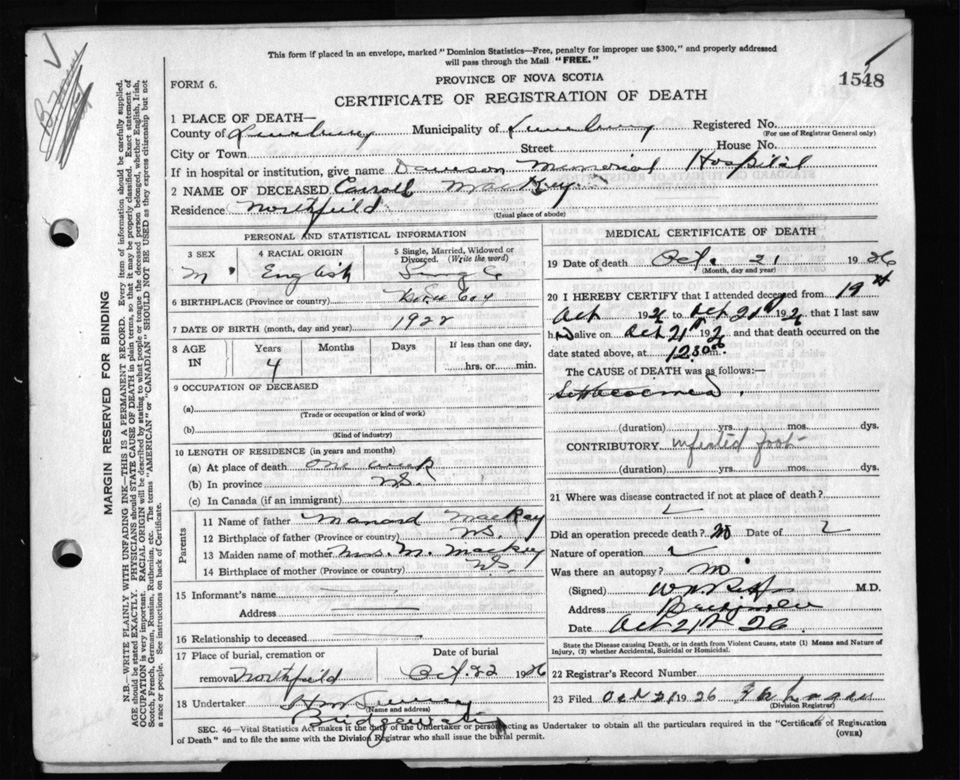 This form if placed in an envelope, marked "Dominion Statistics—Free, penalty for improper use $300," and properly addressed
will pass through the Mail "FREE."
FORM 6.
PROVINCE OF NOVA SCOTIA
1548
CERTIFICATE OF REGISTRATION OF DEATH
MARGIN RESERVED FOR BINDING
N.B.—WRITE PLAINLY WITH UNFADING INK—THIS IS A PERMANENT RECORD. Every item of information should be carefully supplied.
AGE should be stated EXACTLY. PHYSICIANS should STATE CAUSE OF DEATH in plain terms, so that it may be properly classified. Exact statement of
OCCUPATION is very important. RACIAL ORIGIN will be described by stating to what people or tongue the deceased person belonged, whether English, Irish,
Scotch, French, German, Russian, Ruthenian, etc. The terms "AMERICAN" or "CANADIAN" SHOULD NOT BE USED as they express citizenship but not
a race or people. See instructions on back of Certificate.
1 PLACE OF DEATH—
County of Lunenburg Municipality of Lunenburg Registered No.
(For use of Registrar General only)
City or Town Street House No.
If in hospital or institution, give name Dawson Memorial Hospital
2 NAME OF DECEASED Carroll MacKay
Residence Northfield
(Usual place of abode)
PERSONAL AND STATISTICAL INFORMATION
3 SEX
M
4 RACIAL ORIGIN
English
5 Single, Married, Widowed or
Divorced. (Write the word)
Single
6 BIRTHPLACE (Province or country)
7 DATE OF BIRTH (month, day and year) 1922
8 AGE
IN
Years Months Days If less than one day,
4 hrs. or min.
9 OCCUPATION OF DECEASED
(a)
(Trade or occupation or kind of work)
(b)
(Kind of industry)
10 LENGTH OF RESIDENCE (in years and months)
(a) At place of death one week
(b) In province N.S.
(c) In Canada (if an immigrant)
Parents
11 Name of father Manard MacKay
12 Birthplace of father (Province or country) N.S.
13 Maiden name of mother Mrs. M. Mackay
14 Birthplace of mother (Province or country) N.S.
15 Informant's name
Address
16 Relationship to deceased
17 Place of burial, cremation or
removal Northfield
Date of burial
Oct. 22 1926
18 Undertaker
(Name and address)
Bridgewater
MEDICAL CERTIFICATE OF DEATH
19 Date of death Oct. 21 1926
(Month, day and year)
20 I HEREBY CERTIFY that I attended deceased from 19th
Oct 1926 to Oct 21st 1926 that I last saw
him alive on Oct 21st 1926 and that death occurred on
date stated above, at 12.30 m.
The CAUSE of DEATH was as follows:—
Septicaemia
(duration) yrs. mos. dys.
CONTRIBUTORY infected foot
(duration) yrs. mos. dys.
21 Where was disease contracted if not at place of death?
Did an operation precede death? No Date of
Nature of operation
Was there an autopsy? No
(Signed) M.D.
Address Bridgewater
Date Oct 21st 26
State the Disease causing Death, or in death from Violent Causes, state (1) Means and Nature of
Injury, (2) whether Accidental, Suicidal or Homicidal.
22 Registrar's Record Number
23 Filed Oct 21 1926
(Division Registrar)
SEC. 46—Vital Statistics Act makes it the duty of the Undertaker or person acting as Undertaker to obtain all the particulars required in the "Certificate of Registration
of Death" and to file the same with the Division Registrar who shall issue the burial permit.
(OVER)